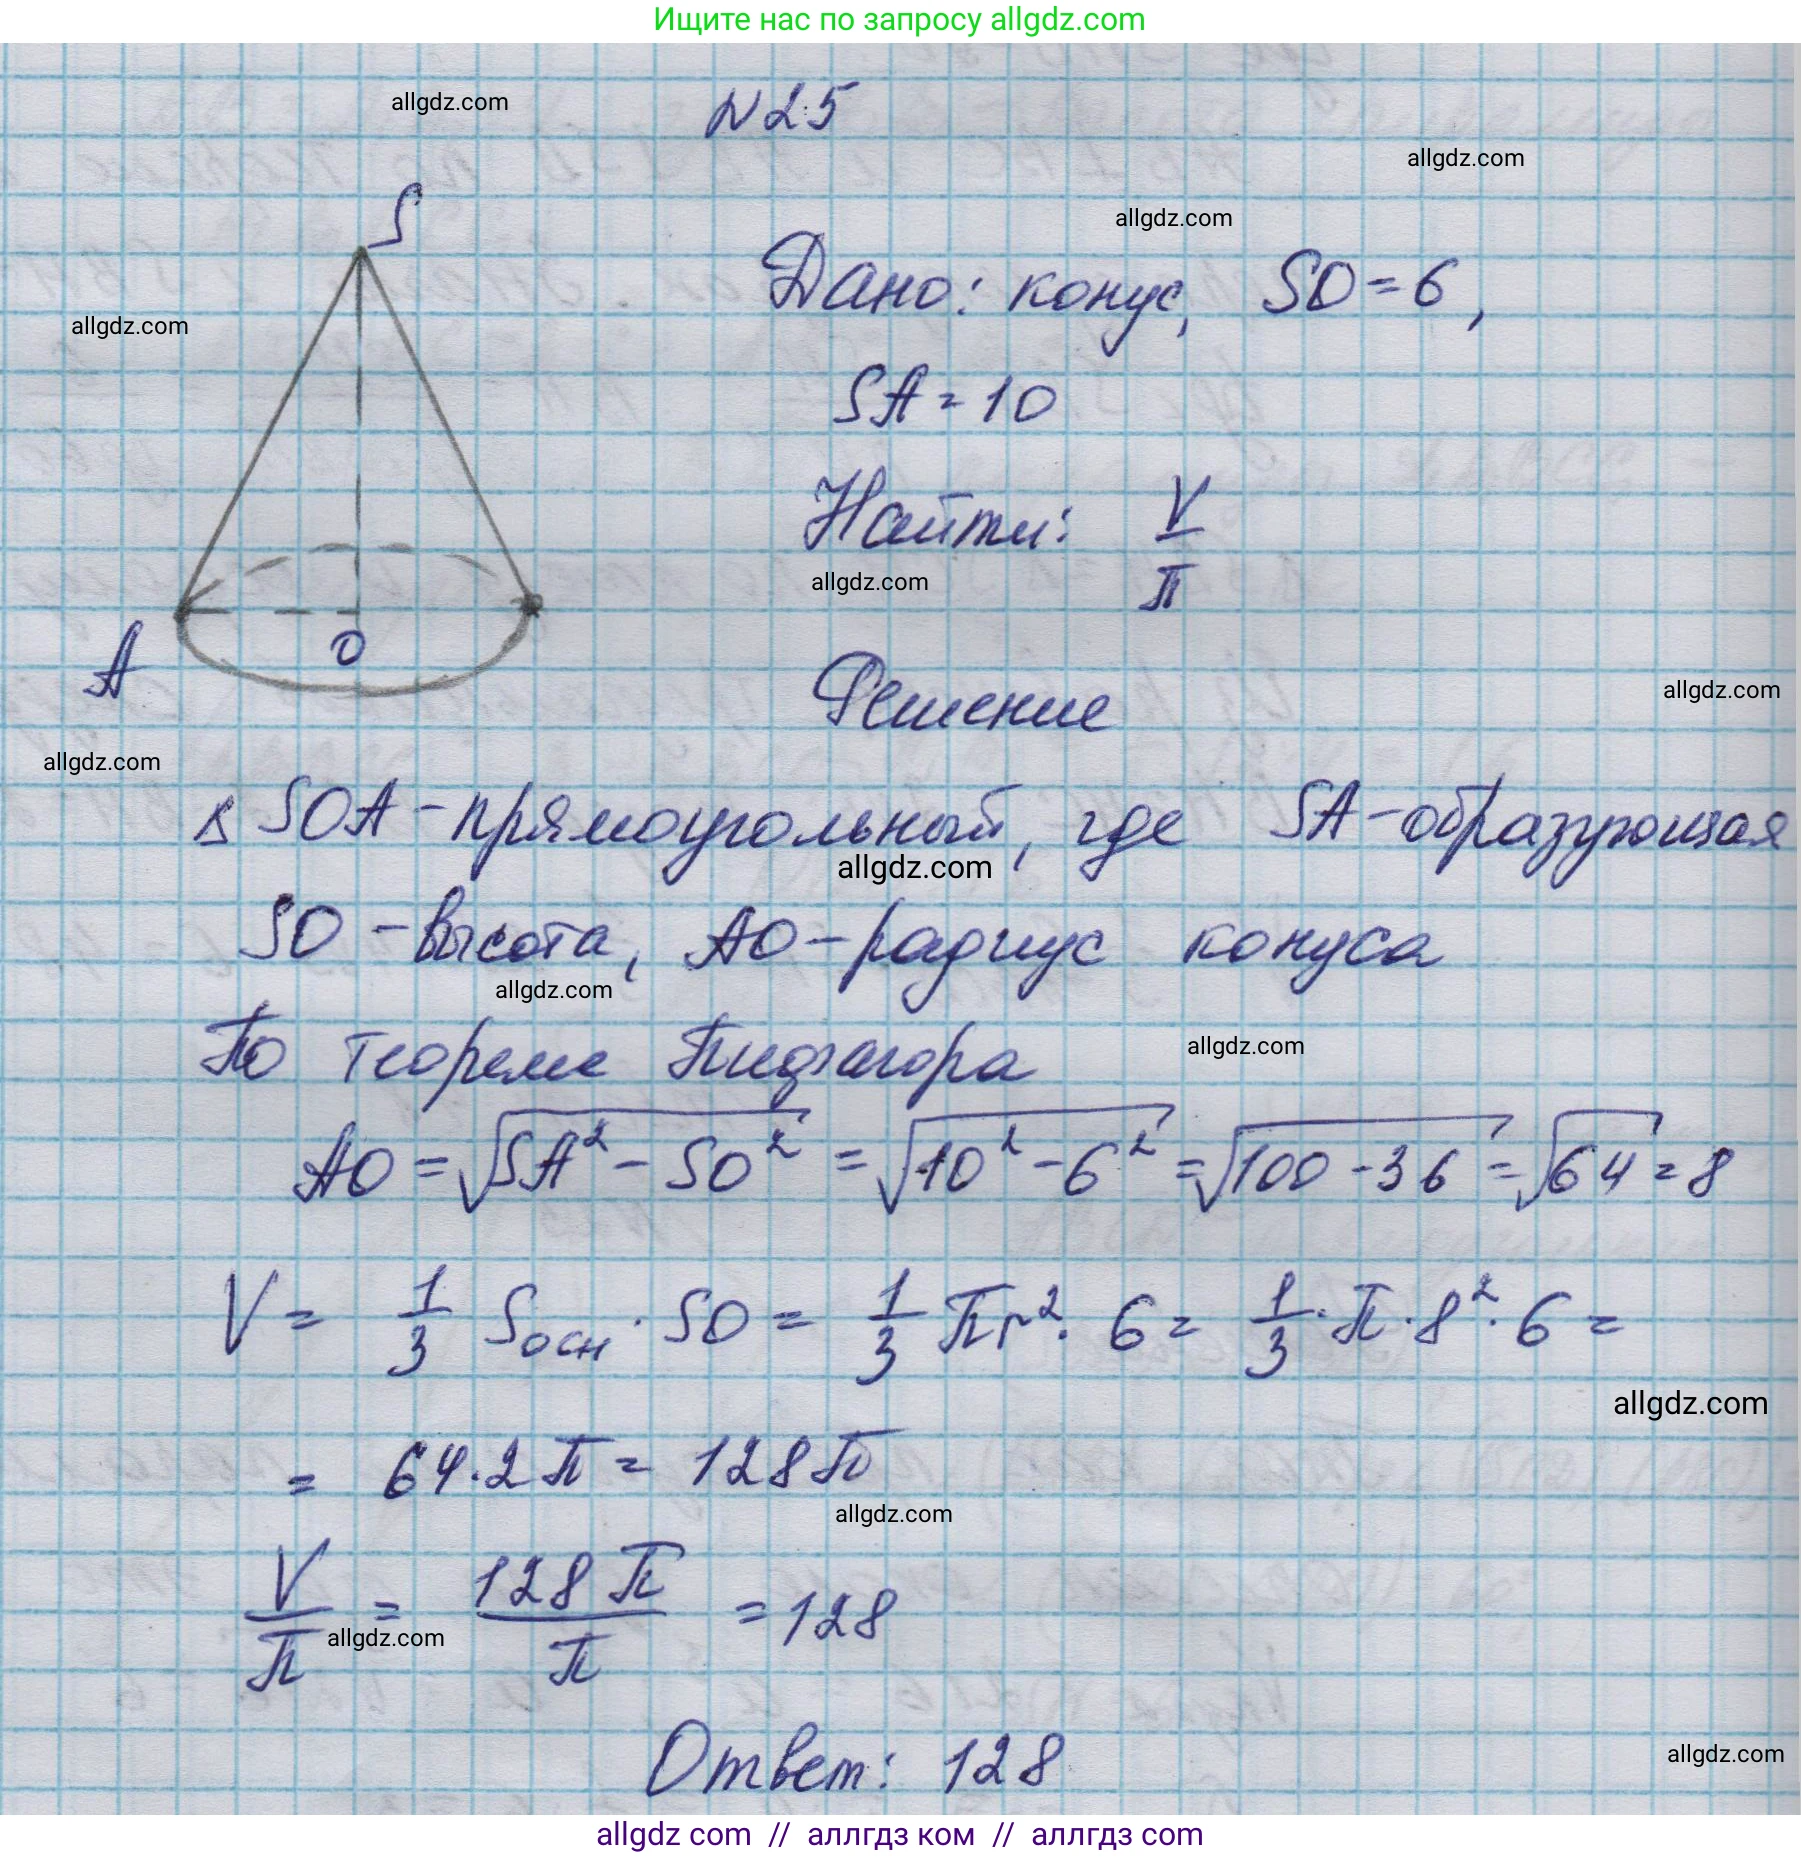 Ищите нас по запросу allgdz.com
allgdz.com
N25
allgdz.com
S
allgdz.com
Дано: конус, SO = 6,
allgdz.com
SA = 10
Найти: V/π
allgdz.com
A
O
Решение
allgdz.com
allgdz.com
Δ SOA - прямоугольный, где SA - образующая
allgdz.com
SO - высота, AO - радиус конуса
allgdz.com
По теореме Пифагора
allgdz.com
AO = √(SA² - SO²) = √(10² - 6²) = √(100 - 36) = √64 = 8
V = 1/3 Sосн · SO = 1/3 πr² · 6 = 1/3 · π · 8² · 6 =
allgdz.com
= 64 · 2π = 128π
allgdz.com
V/π = 128π/π = 128
allgdz.com
Ответ: 128
allgdz.com
allgdz com // аллгдз ком // аллгдз com